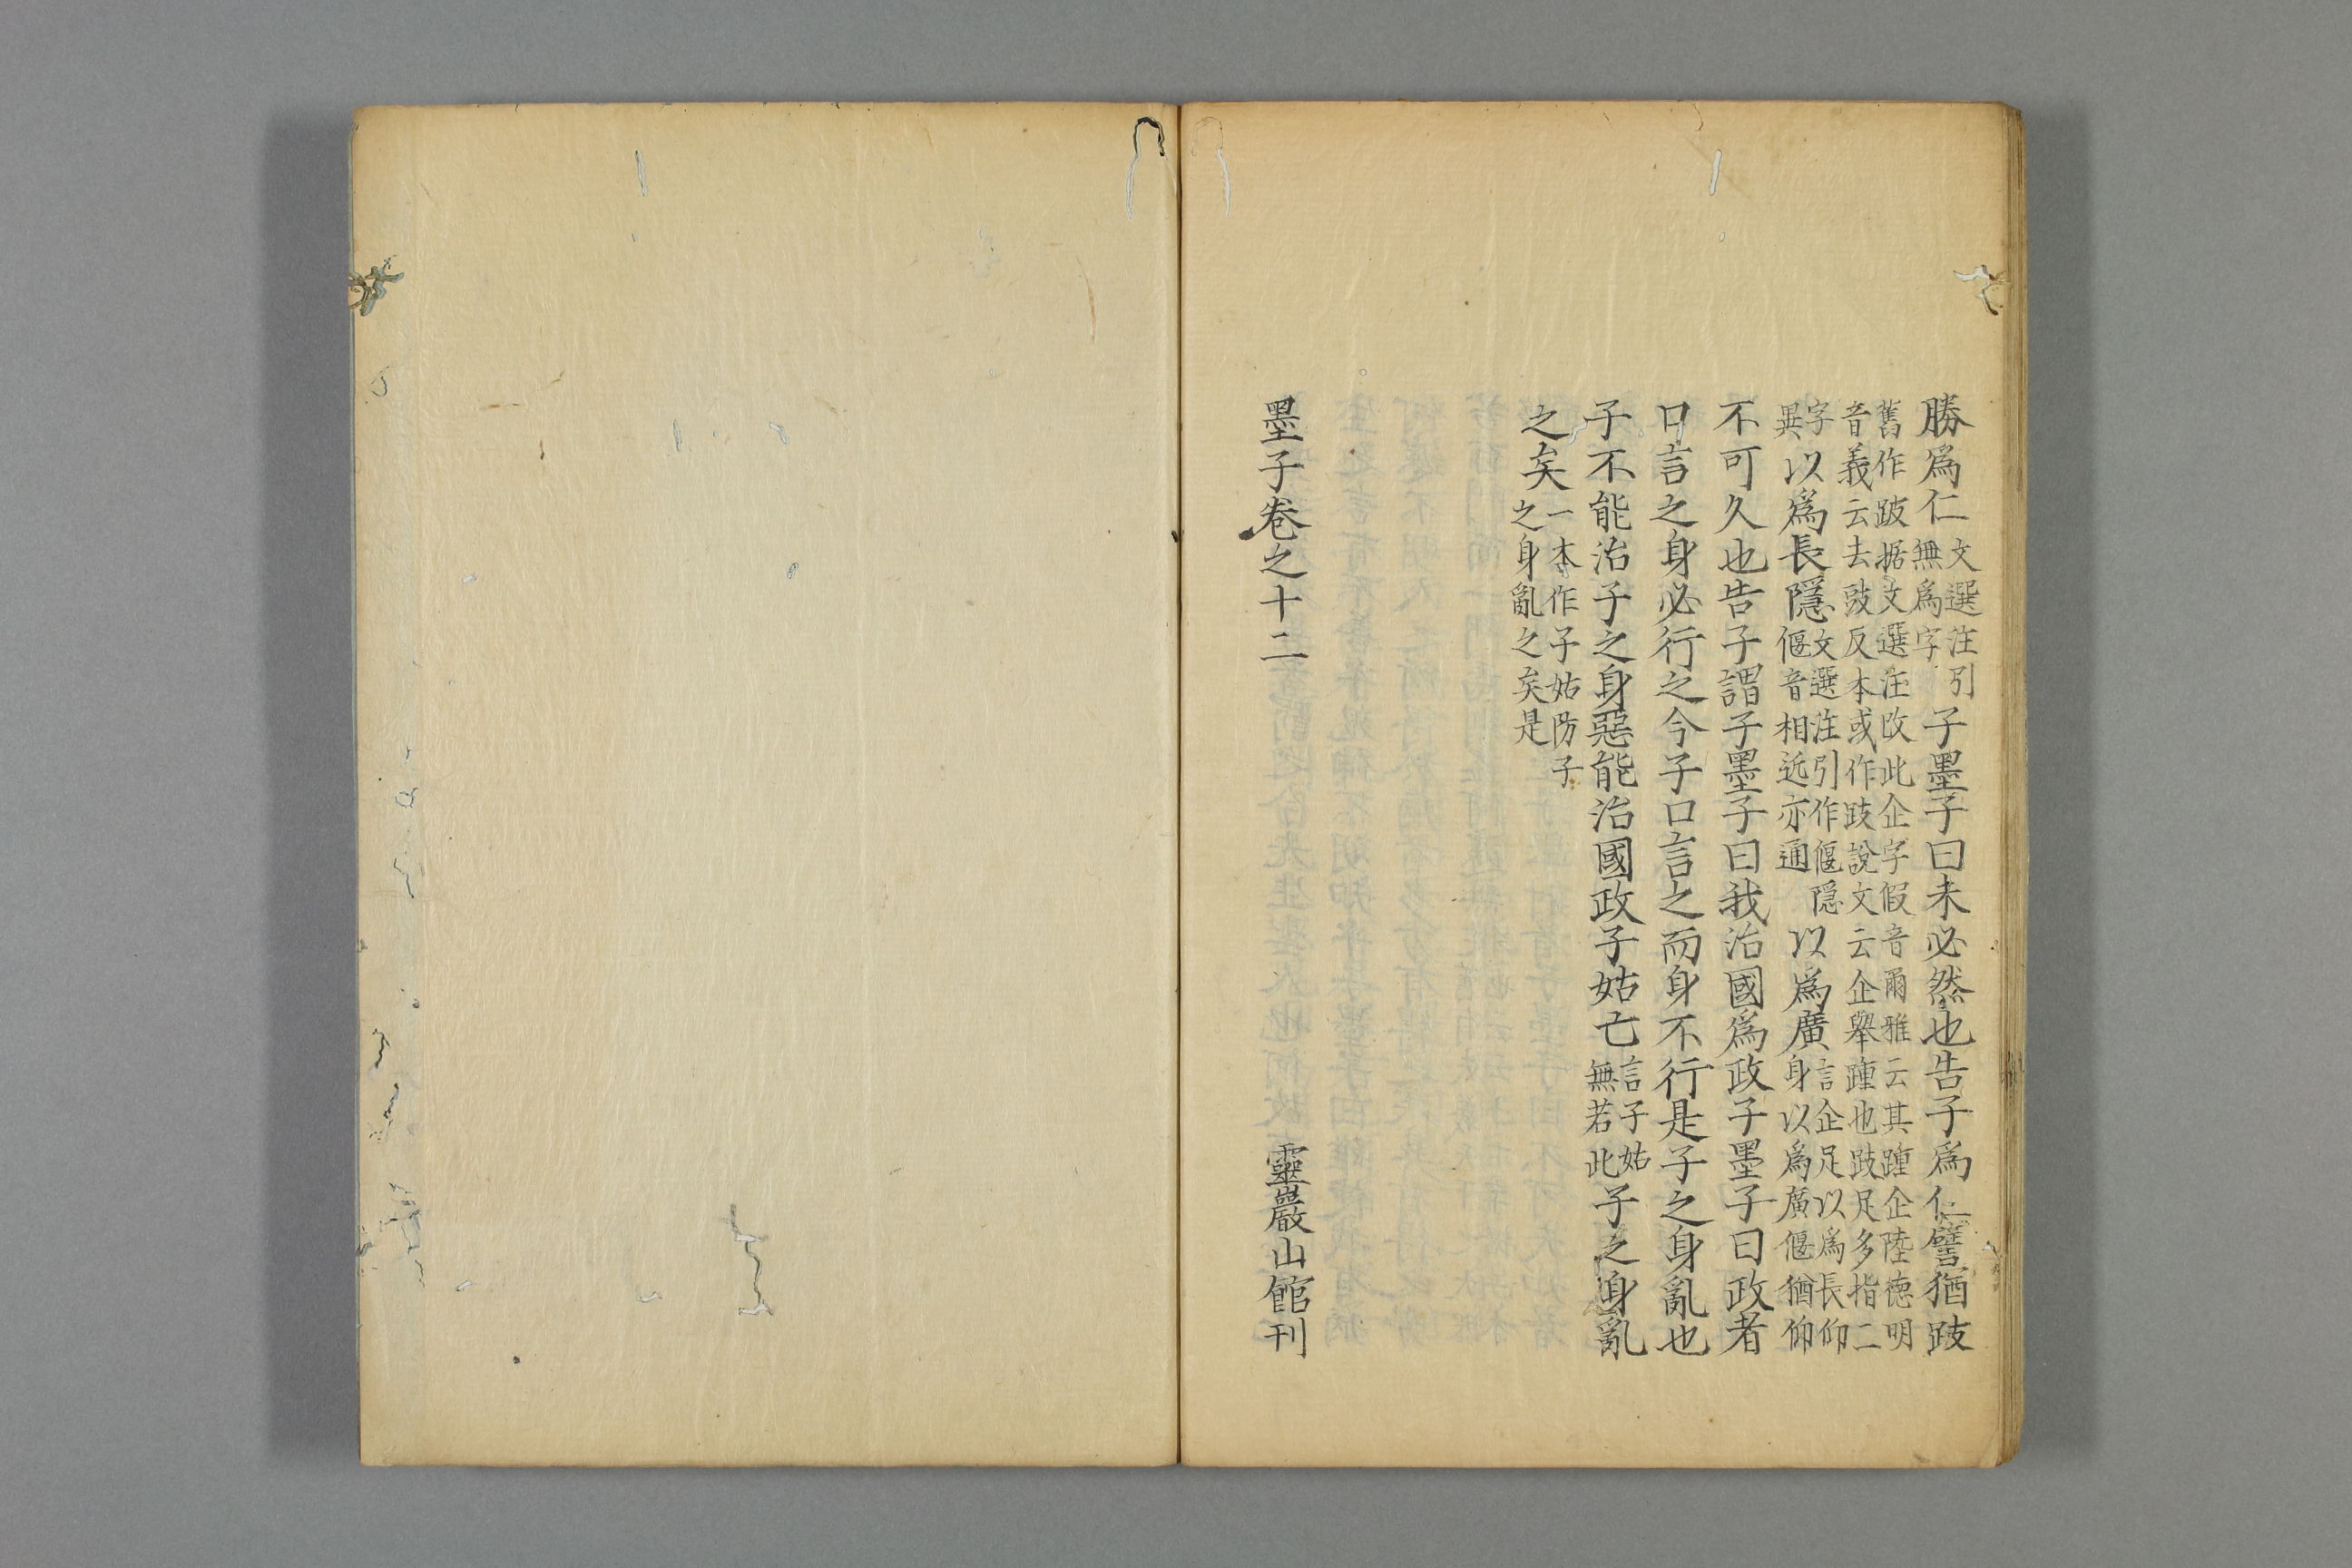 勝爲仁文選注引無爲字子墨子曰未必然也告子爲仁譬猶跂
舊作跛据文選注改此企字假音爾雅云其踵企陸德明音義云去跂反本或作跂說文云企舉踵也跂足多指二
字異以爲長隱文選注引作偃隱偃音相近亦通以爲廣言企足以爲長仰身以爲廣偃猶仰
不可久也告子謂子墨子曰我治國爲政子墨子曰政者
口言之身必行之今子口言之而身不行是子之身亂也
子不能治子之身惡能治國政子姑亡言子姑無若此子之身亂
之矣一本作子姑防子之身亂之矣是
墨子卷之十二 靈巖山館刊